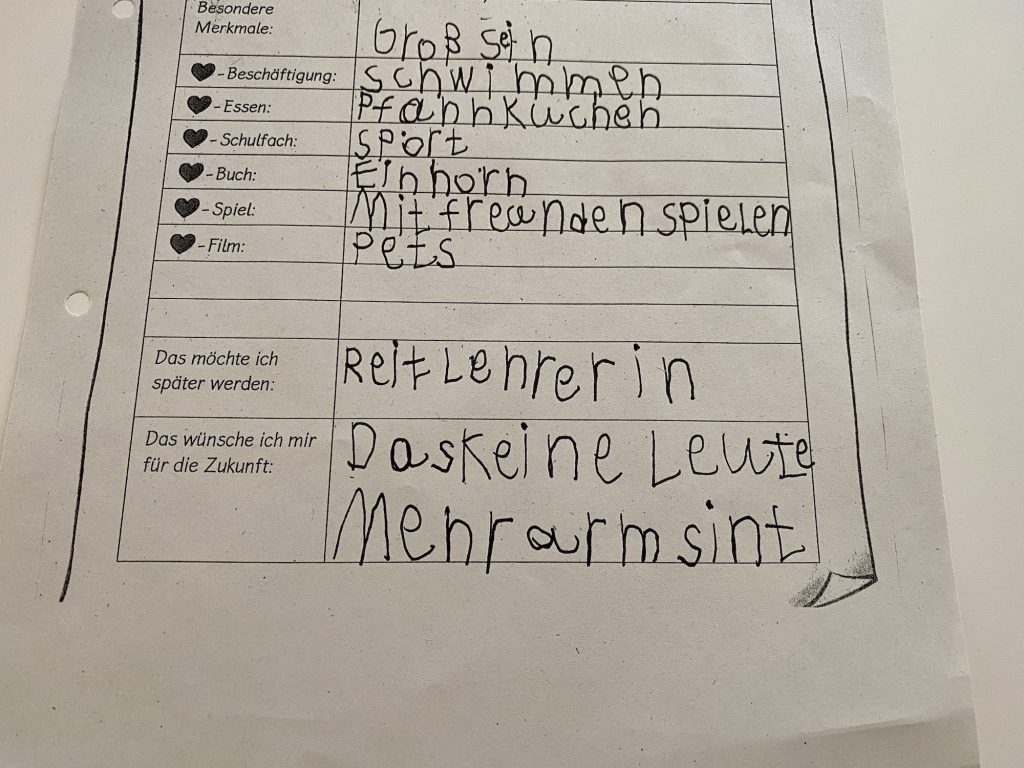 Besondere
Merkmale: Groß sein
♥-Beschäftigung: schwimmen
♥-Essen: Pfannkuchen
♥-Schulfach: sport
♥-Buch: Einhorn
♥-Spiel: Mit freunden spielen
♥-Film: Pets
Das möchte ich
später werden: ReitLehrerin
Das wünsche ich mir
für die Zukunft: Das Keine Leute
Mehr arm sint